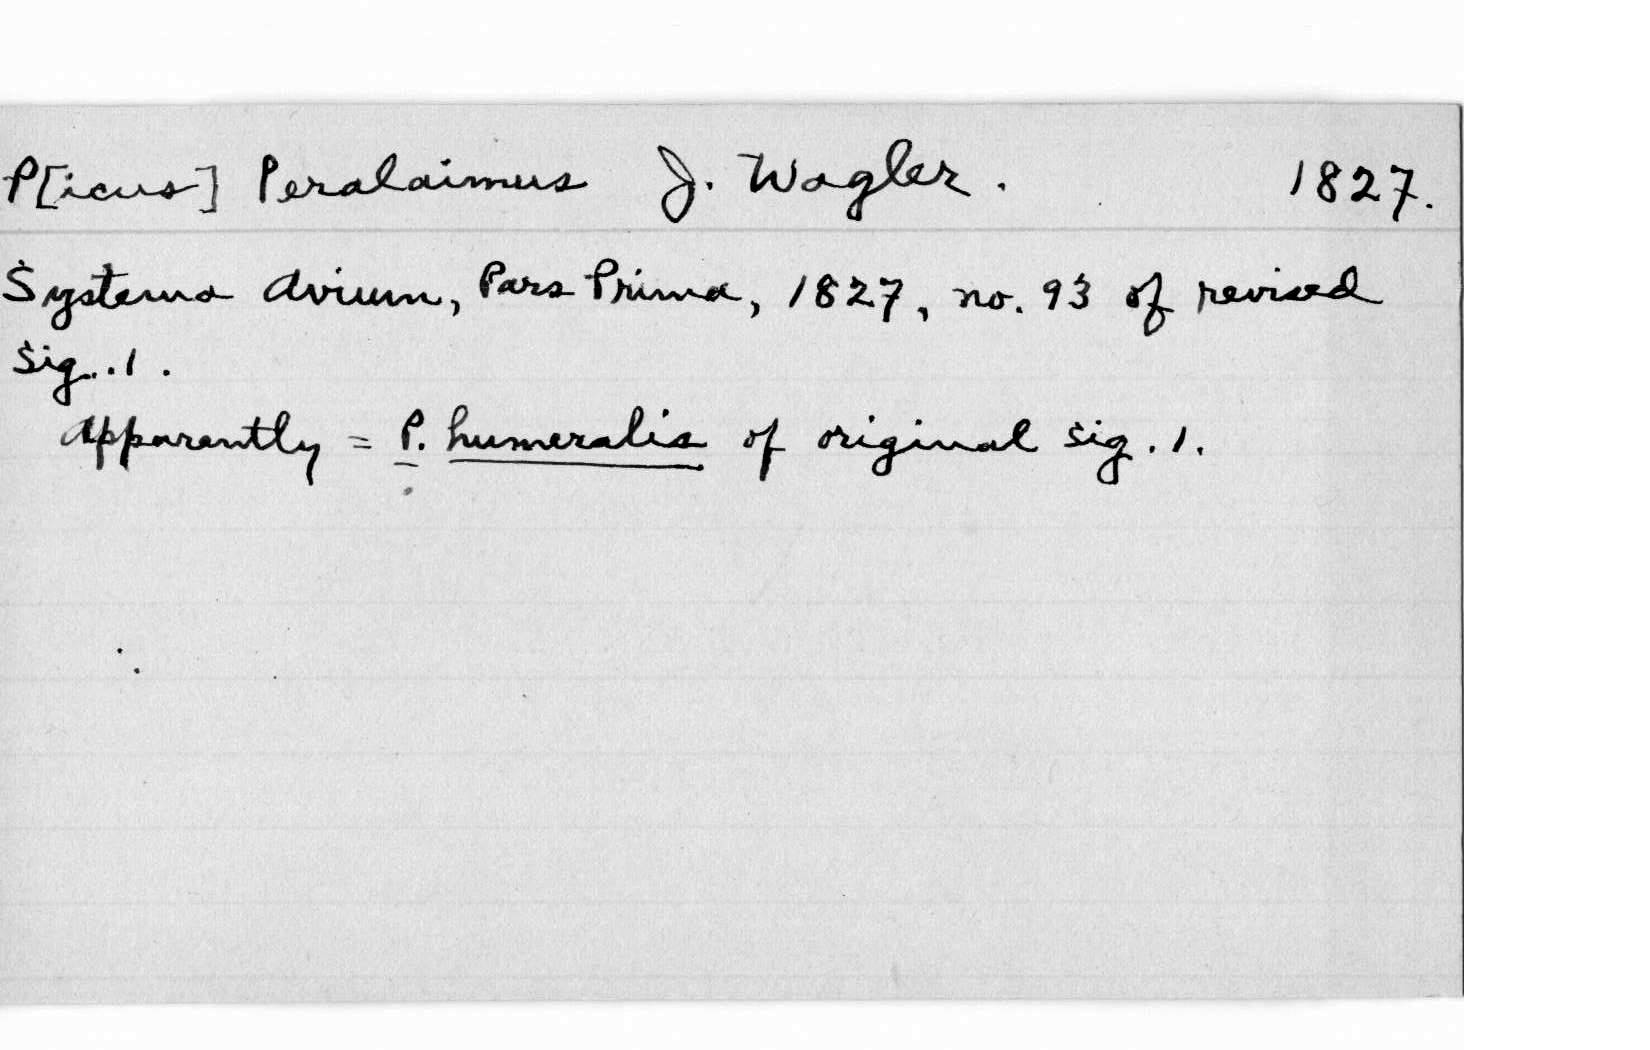 P[icus] Peralaimus J. Wagler. 1827.
Systema Avium, Pars Prima, 1827, no. 93 of revised
Sig. 1.
Apparently = P. humeralis of original Sig. 1.